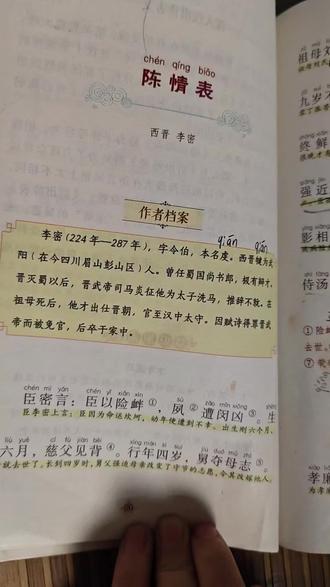 chén qíng biǎo
陈情表
西晋 李密
作者档案
qián gān
李密(224年—287年),字令伯,本名虔。西晋犍为武
阳(在今四川眉山彭山区)人。曾任蜀国尚书郎,极有辩才,
晋灭蜀以后,晋武帝司马炎征他为太子洗马,推辞不就。在
祖母死后,他才出仕晋朝,官至汉中太守。因赋诗得罪晋武
帝而被免官,后卒于家中。
chén mì yán chén yǐ xiǎn xìn sù zāo mǐn xiōng
臣密言:臣以险衅①,夙②遭闵凶③。生
臣李密上言:臣因为命运坎坷,幼年便遭到不幸。出生刚六个月,
liù yuè cí fù jiàn bèi xíng nián sì suì jiù duó mǔ zhì
六月,慈父见背④。行年四岁,舅夺母志⑤。
就去世了。长到四岁时,舅父强迫母亲改变了守节的志愿,令其改嫁他人。
祖母刘
九岁不
终鲜
强近
影相
侍汤
①险
去世。
孝廉